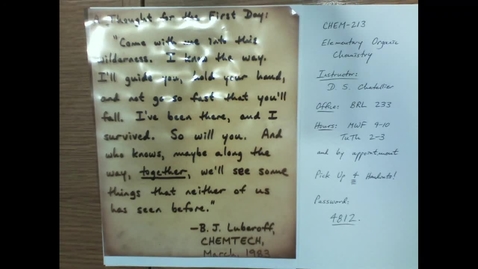 Thought for the First Day:
"Come with me into this
wilderness. I know the way.
I'll guide you, hold your hand,
and not go so fast that you'll
fall. I've been there, and I
survived. So will you. And
who knows, maybe along the
way, together, we'll see some
things that neither of us
has seen before."
—B. J. Luberoff,
CHEMTECH,
March, 1983
CHEM-213
Elementary Organic
Chemistry
Instructor:
D. S. Chatellier
Office: BRL 233
Hours: MWF 9-10
TuTh 2-3
and by appointment
Pick Up Handouts!
Password:
4812